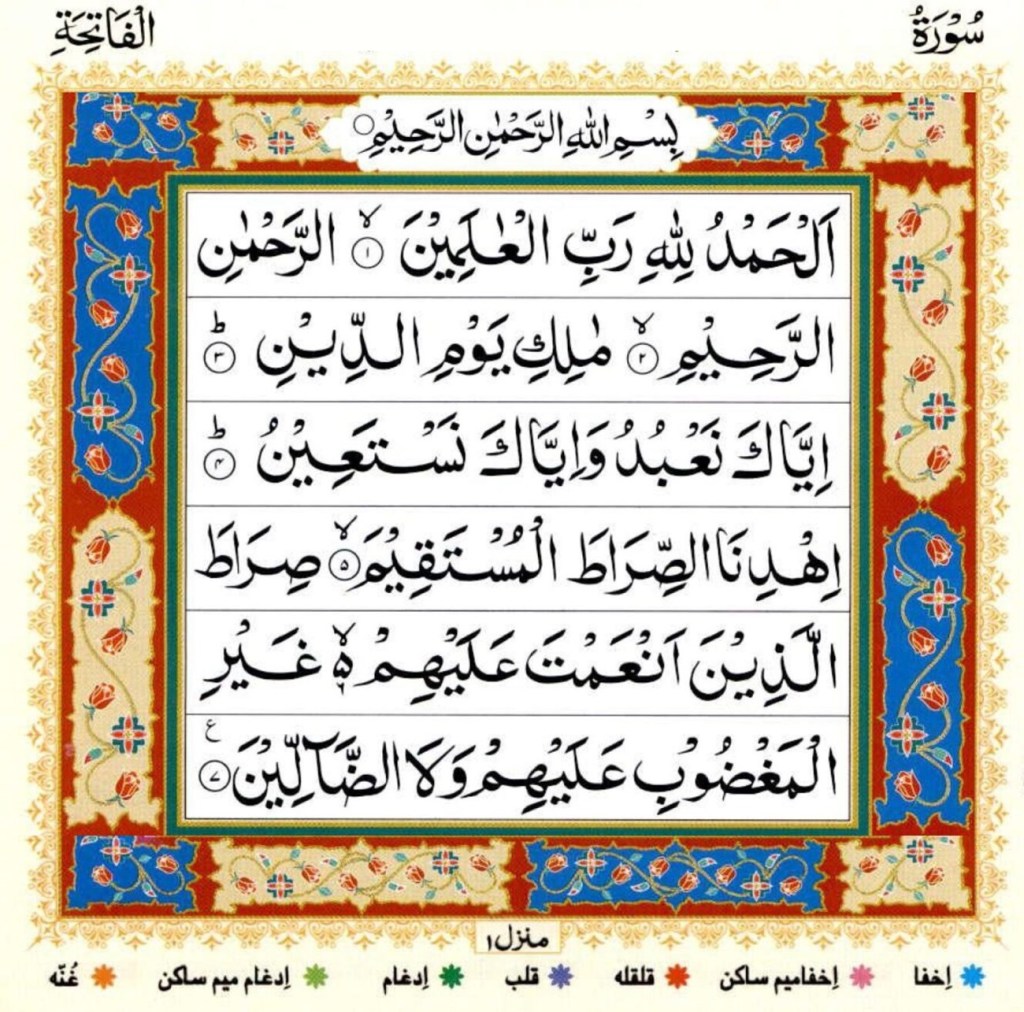 سُوْرَةُ الْفَاتِحَةِ
بِسْمِ اللّٰهِ الرَّحْمٰنِ الرَّحِيْمِ ○
اَلْحَمْدُ لِلّٰهِ رَبِّ الْعٰلَمِيْنَ ۙ﴿۱﴾ الرَّحْمٰنِ
الرَّحِيْمِ ۙ﴿۲﴾ مٰلِكِ يَوْمِ الدِّيْنِ ؕ﴿۳﴾
اِيَّاكَ نَعْبُدُ وَاِيَّاكَ نَسْتَعِيْنُ ؕ﴿۴﴾
اِهْدِنَا الصِّرَاطَ الْمُسْتَقِيْمَ ۙ﴿۵﴾ صِرَاطَ
الَّذِيْنَ اَنْعَمْتَ عَلَيْهِمْ ۙ۬ۥ غَيْرِ
الْمَغْضُوْبِ عَلَيْهِمْ وَلَا الضَّآلِّيْنَ ﴿۷﴾ ع
منزل ۱
اِخفا اِخفامیم ساکن قلقله قلب اِدغام اِدغام میم ساکن غُنّه